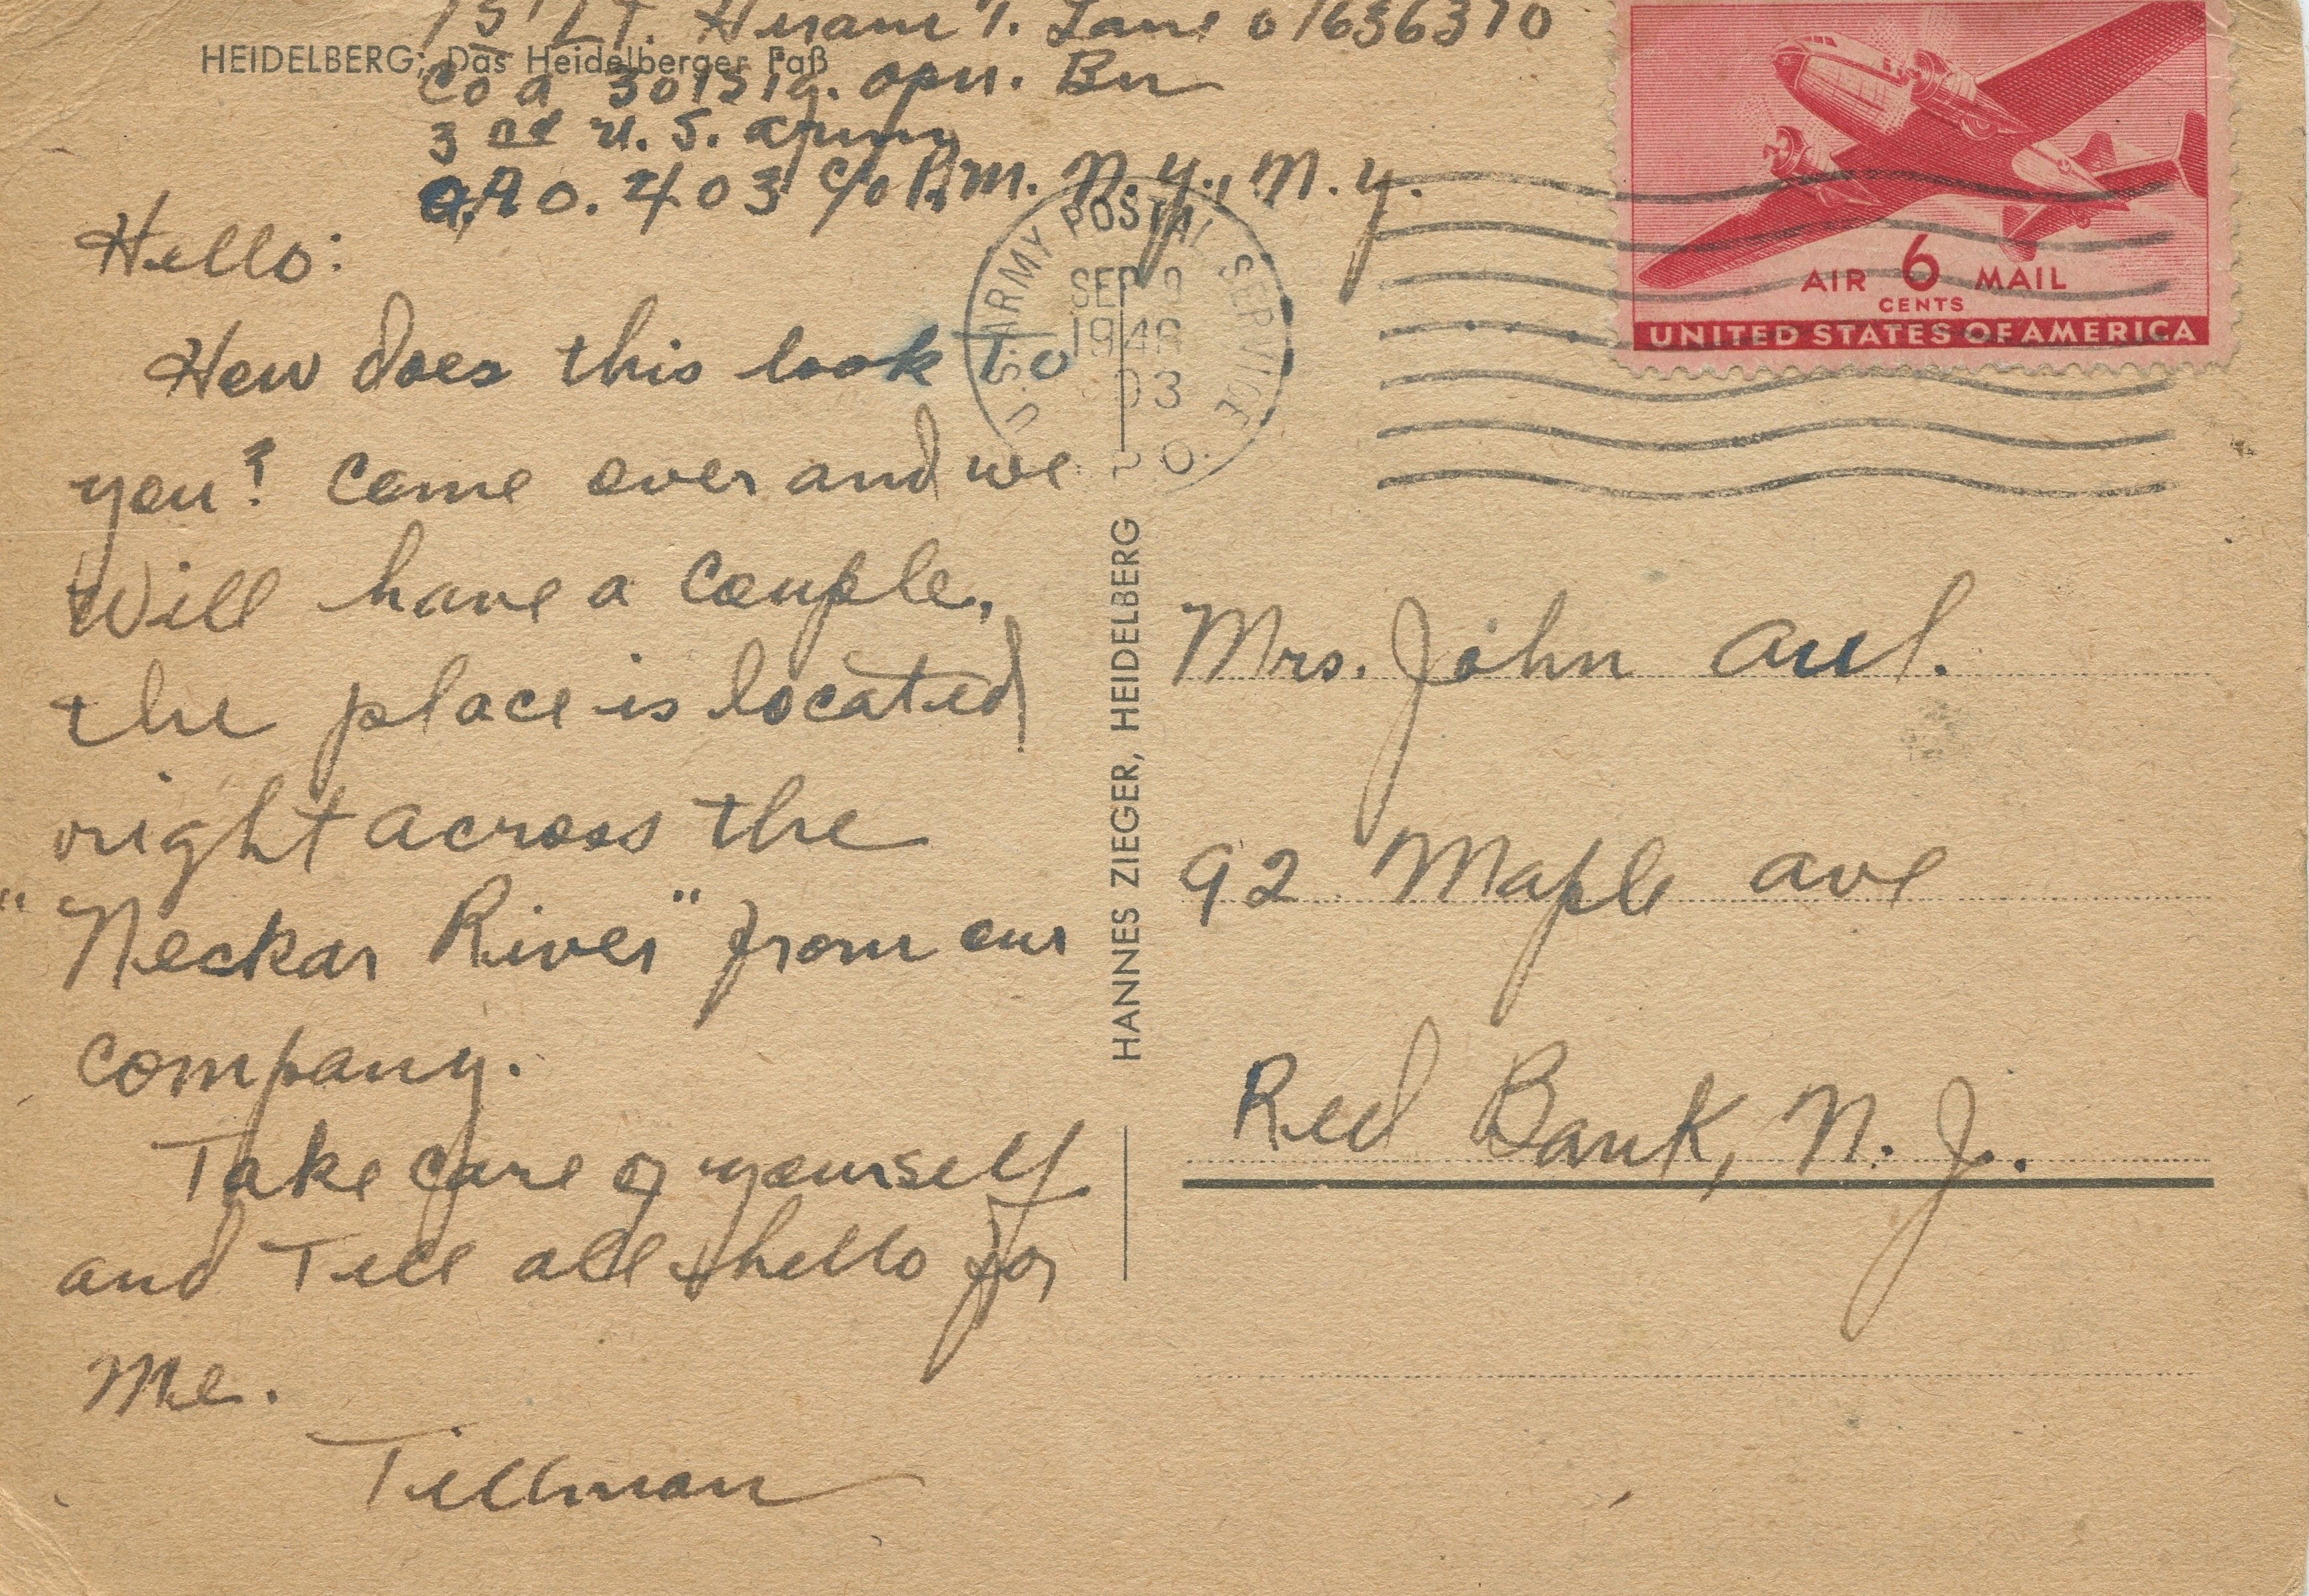 1st Lt. Hiram T. Lane 01636370
HEIDELBERG: Das Heidelberger Faß
Co A 301 Sig. Opn. Bn
3rd U.S. Army
A.P.O. 403 c/o P.M. N.Y., N.Y.
AIR 6 MAIL
CENTS
UNITED STATES OF AMERICA
U.S. ARMY POSTAL SERVICE
SEP 9
194
03
P.O.
Hello:
How does this look to
you? Come over and we
Will have a couple.
the place is located
right across the
"Neckar River" from our
company.
Take care of yourself
and Tell all hello for
Me.
Tillman
HANNES ZIEGER, HEIDELBERG
Mrs. John Aul.
92 Maple Ave
Red Bank, N.J.